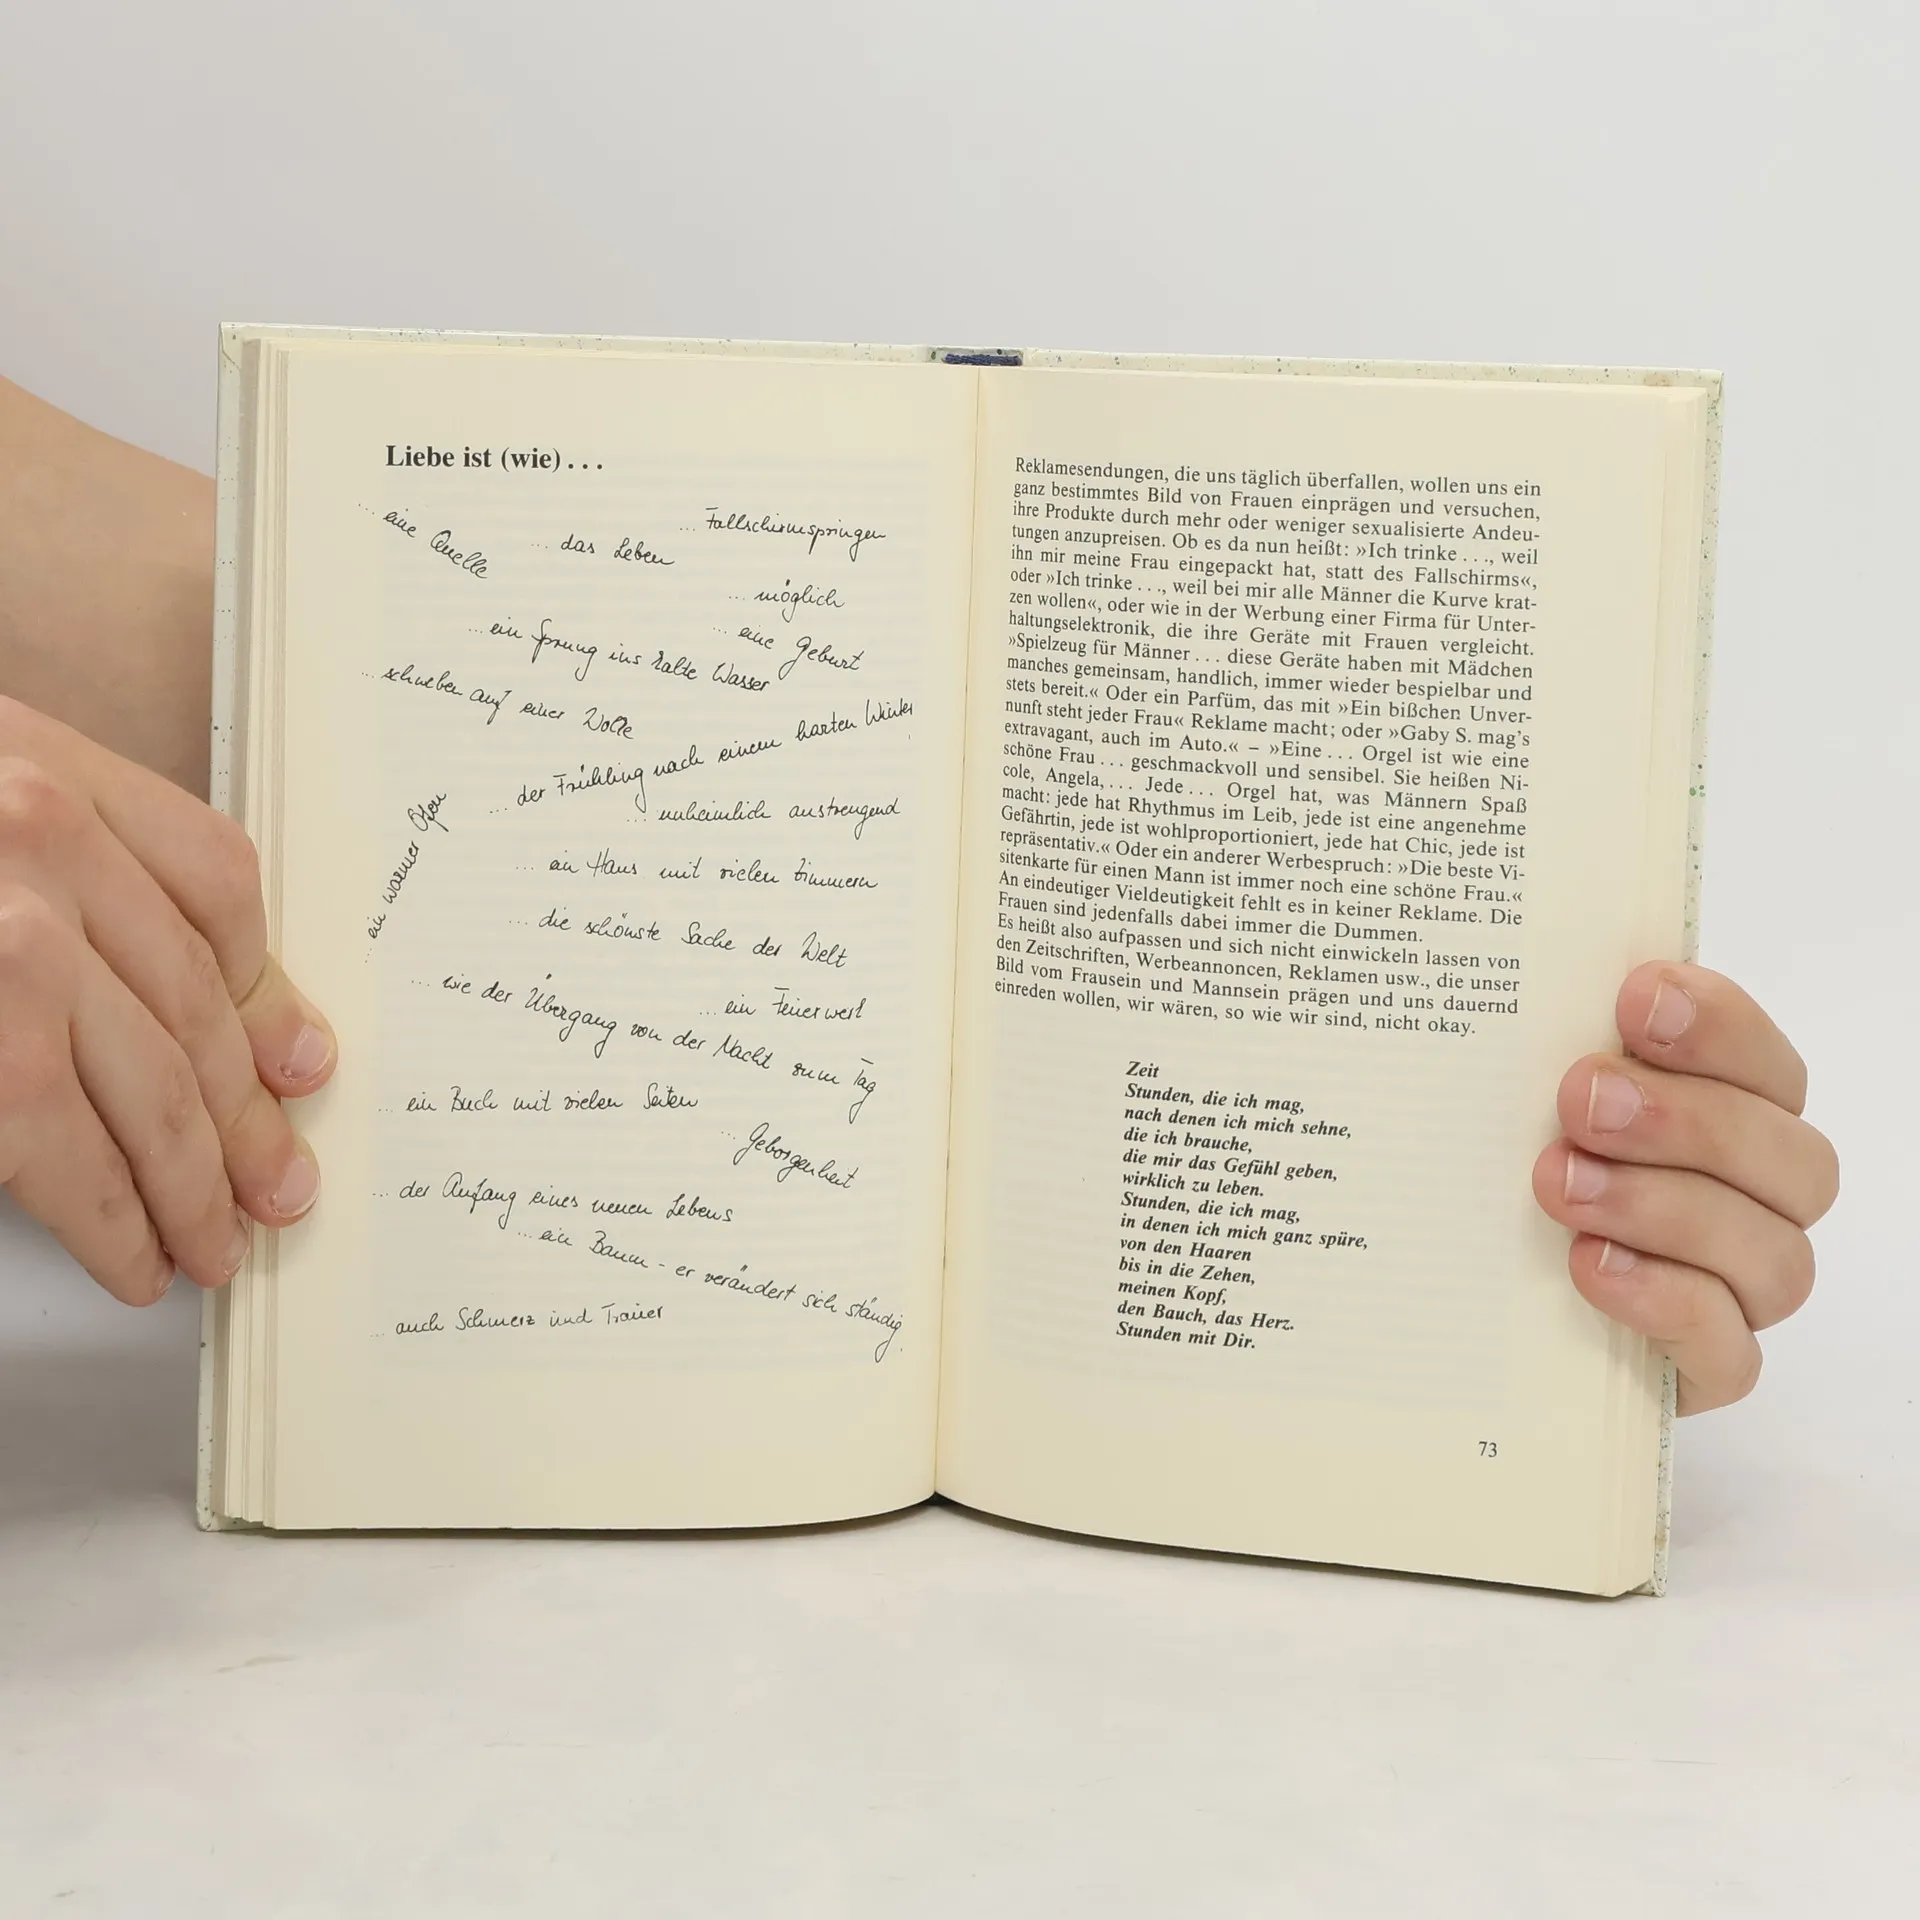 Liebe ist (wie) . . .
... eine Quelle
... das Leben
... Fallschirmspringen
... möglich
... eine Geburt
... ein Sprung ins kalte Wasser
... schweben auf einer Wolke
... der Frühling nach einem harten Winter
... unheimlich anstrengend
... ein warmer Ofen
... ein Haus mit vielen Zimmern
... die schönste Sache der Welt
... wie der Übergang von der Nacht zum Tag
... ein Feuerwerk
... ein Buch mit vielen Seiten
... Geborgenheit
... der Anfang eines neuen Lebens
... ein Baum - er verändert sich ständig.
... auch Schmerz und Trauer
Reklamesendungen, die uns täglich überfallen, wollen uns ein
ganz bestimmtes Bild von Frauen einprägen und versuchen,
ihre Produkte durch mehr oder weniger sexualisierte Andeu-
tungen anzupreisen. Ob es da nun heißt: »Ich trinke . . ., weil
ihn mir meine Frau eingepackt hat, statt des Fallschirms«,
oder »Ich trinke . . ., weil bei mir alle Männer die Kurve krat-
zen wollen«, oder wie in der Werbung einer Firma für Unter-
haltungselektronik, die ihre Geräte mit Frauen vergleicht.
»Spielzeug für Männer . . . diese Geräte haben mit Mädchen
manches gemeinsam, handlich, immer wieder bespielbar und
stets bereit.« Oder ein Parfüm, das mit »Ein bißchen Unver-
nunft steht jeder Frau« Reklame macht; oder »Gaby S. mag's
extravagant, auch im Auto.« – »Eine . . . Orgel ist wie eine
schöne Frau . . . geschmackvoll und sensibel. Sie heißen Ni-
cole, Angela, . . . Jede . . . Orgel hat, was Männern Spaß
macht: jede hat Rhythmus im Leib, jede ist eine angenehme
Gefährtin, jede ist wohlproportioniert, jede hat Chic, jede ist
repräsentativ.« Oder ein anderer Werbespruch: »Die beste Vi-
sitenkarte für einen Mann ist immer noch eine schöne Frau.«
An eindeutiger Vieldeutigkeit fehlt es in keiner Reklame. Die
Frauen sind jedenfalls dabei immer die Dummen.
Es heißt also aufpassen und sich nicht einwickeln lassen von
den Zeitschriften, Werbeannoncen, Reklamen usw., die unser
Bild vom Frausein und Mannsein prägen und uns dauernd
einreden wollen, wir wären, so wie wir sind, nicht okay.
Zeit
Stunden, die ich mag,
nach denen ich mich sehne,
die ich brauche,
die mir das Gefühl geben,
wirklich zu leben.
Stunden, die ich mag,
in denen ich mich ganz spüre,
von den Haaren
bis in die Zehen,
meinen Kopf,
den Bauch, das Herz.
Stunden mit Dir.
73